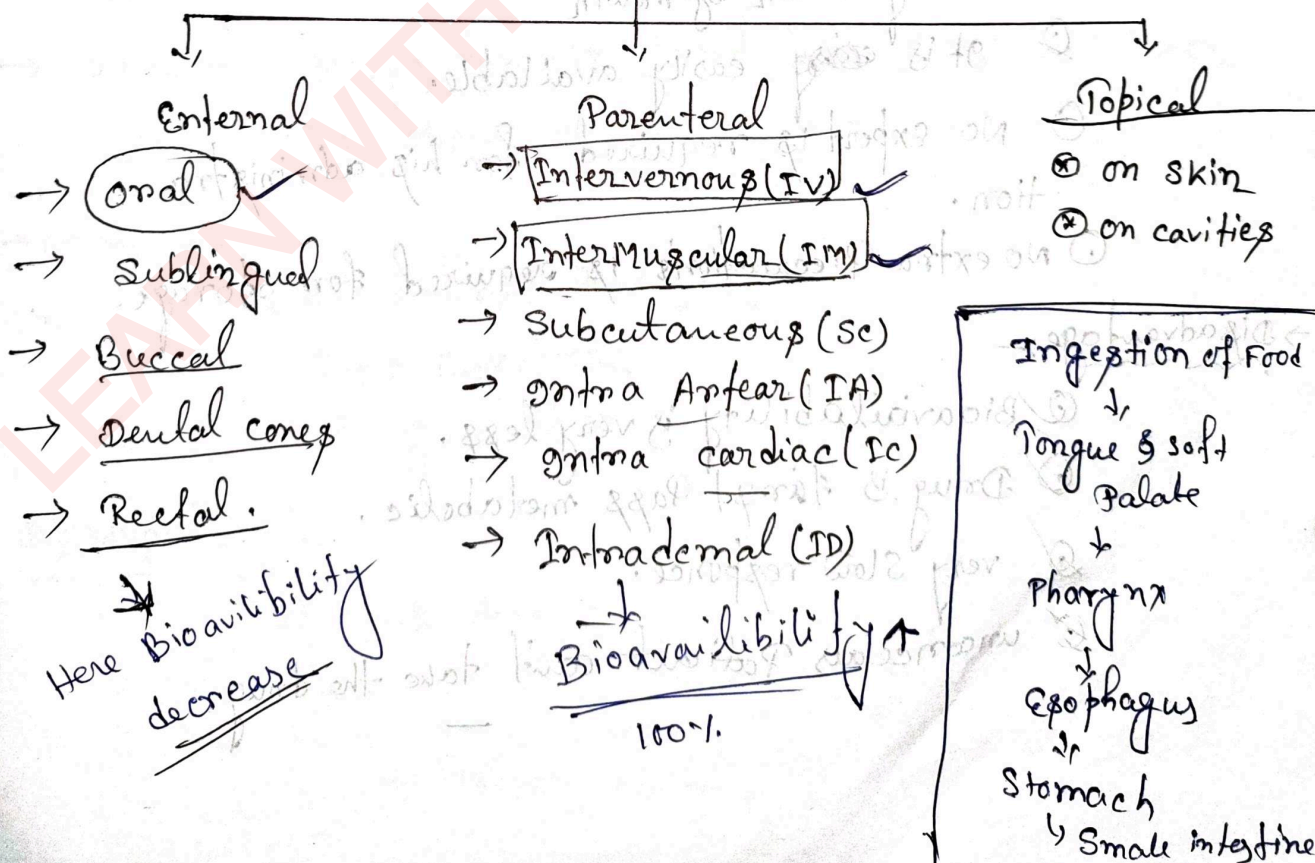 Enternal
→ Oral ✓
→ Sublingued
→ Buccal
→ Dental cones
→ Rectal.
Here Bioavilibility
decrease
Parenteral
→ Intervernous (IV) ✓
→ InterMuscular (IM) ✓
→ Subcutaneous (SC)
→ Intra Artear (IA)
→ Intra cardiac (IC)
→ Intrademal (ID)
Bioavailibility ↑
100%
Topical
⊛ on skin
⊛ on cavities
Ingestion of Food
↓
Tongue & soft
Palate
↓
Pharynx
↓
Esophagus
↓
Stomach
↳ Smale intestine
LEARN WITH